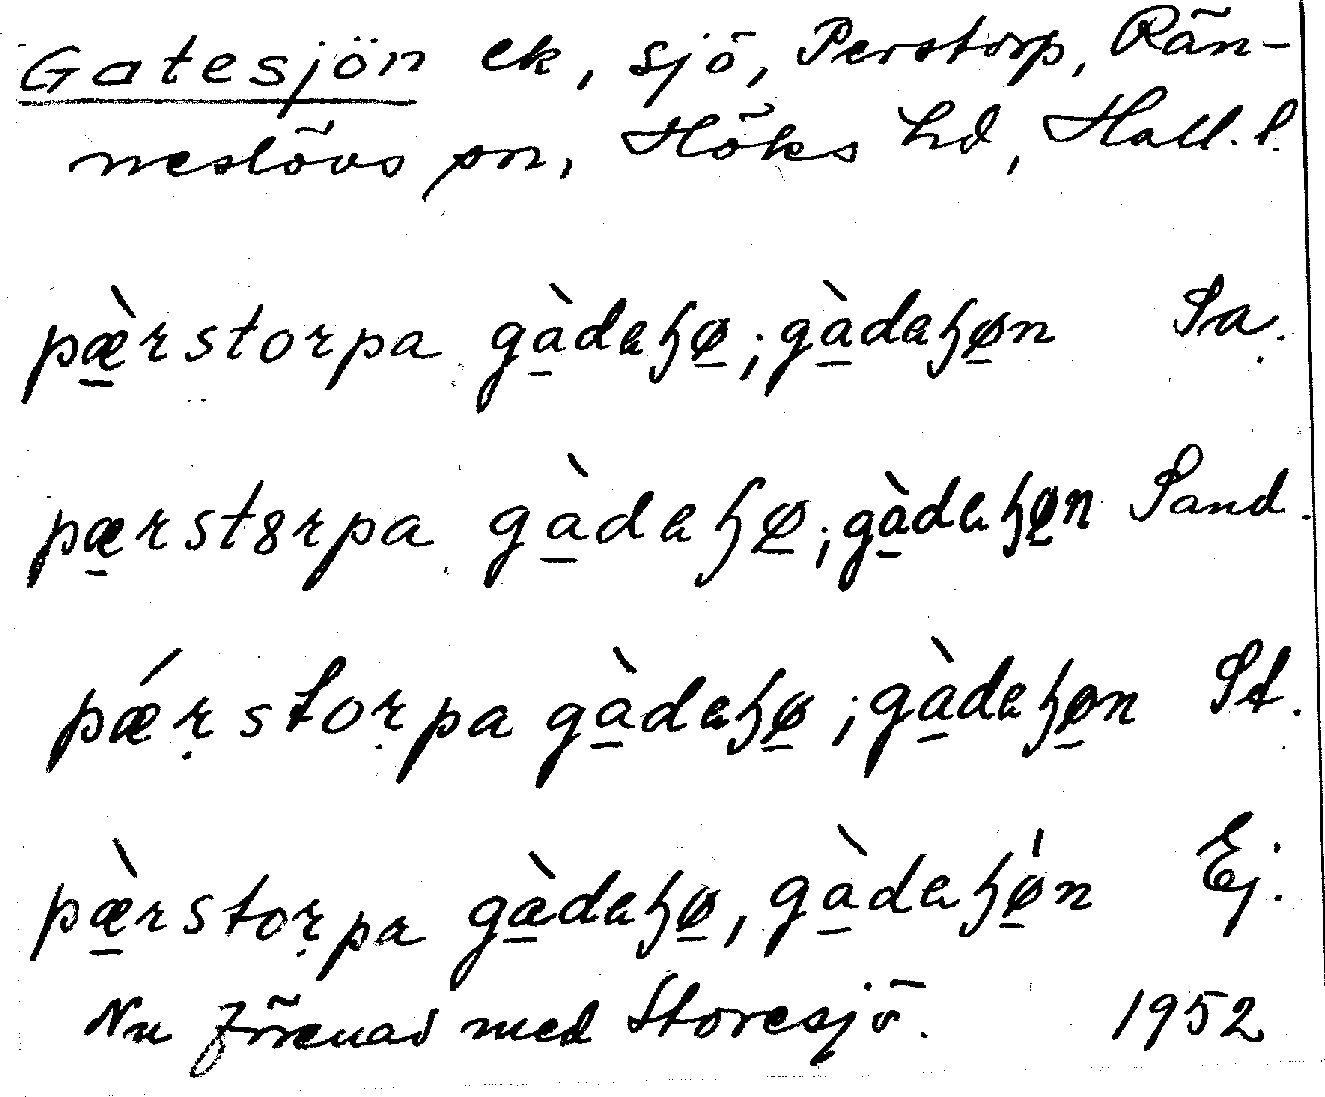 Gatesjön ek, sjö, Perstorp, Rän-
neslövs sn, Höks hd, Hall. l.
pæ̀rstorpa gàdaɧø; gàdaɧøn Sa.
pærst8rpa gàdaɧø; gàdaɧøn Sand.
pǽṛstoṛpa gàdaɧø; gàdaɧøn St.
pæ̀rstoṛpa gàdaɧø, gàdaɧø̍n Ej.
Nu förenad med Storesjö. 1952